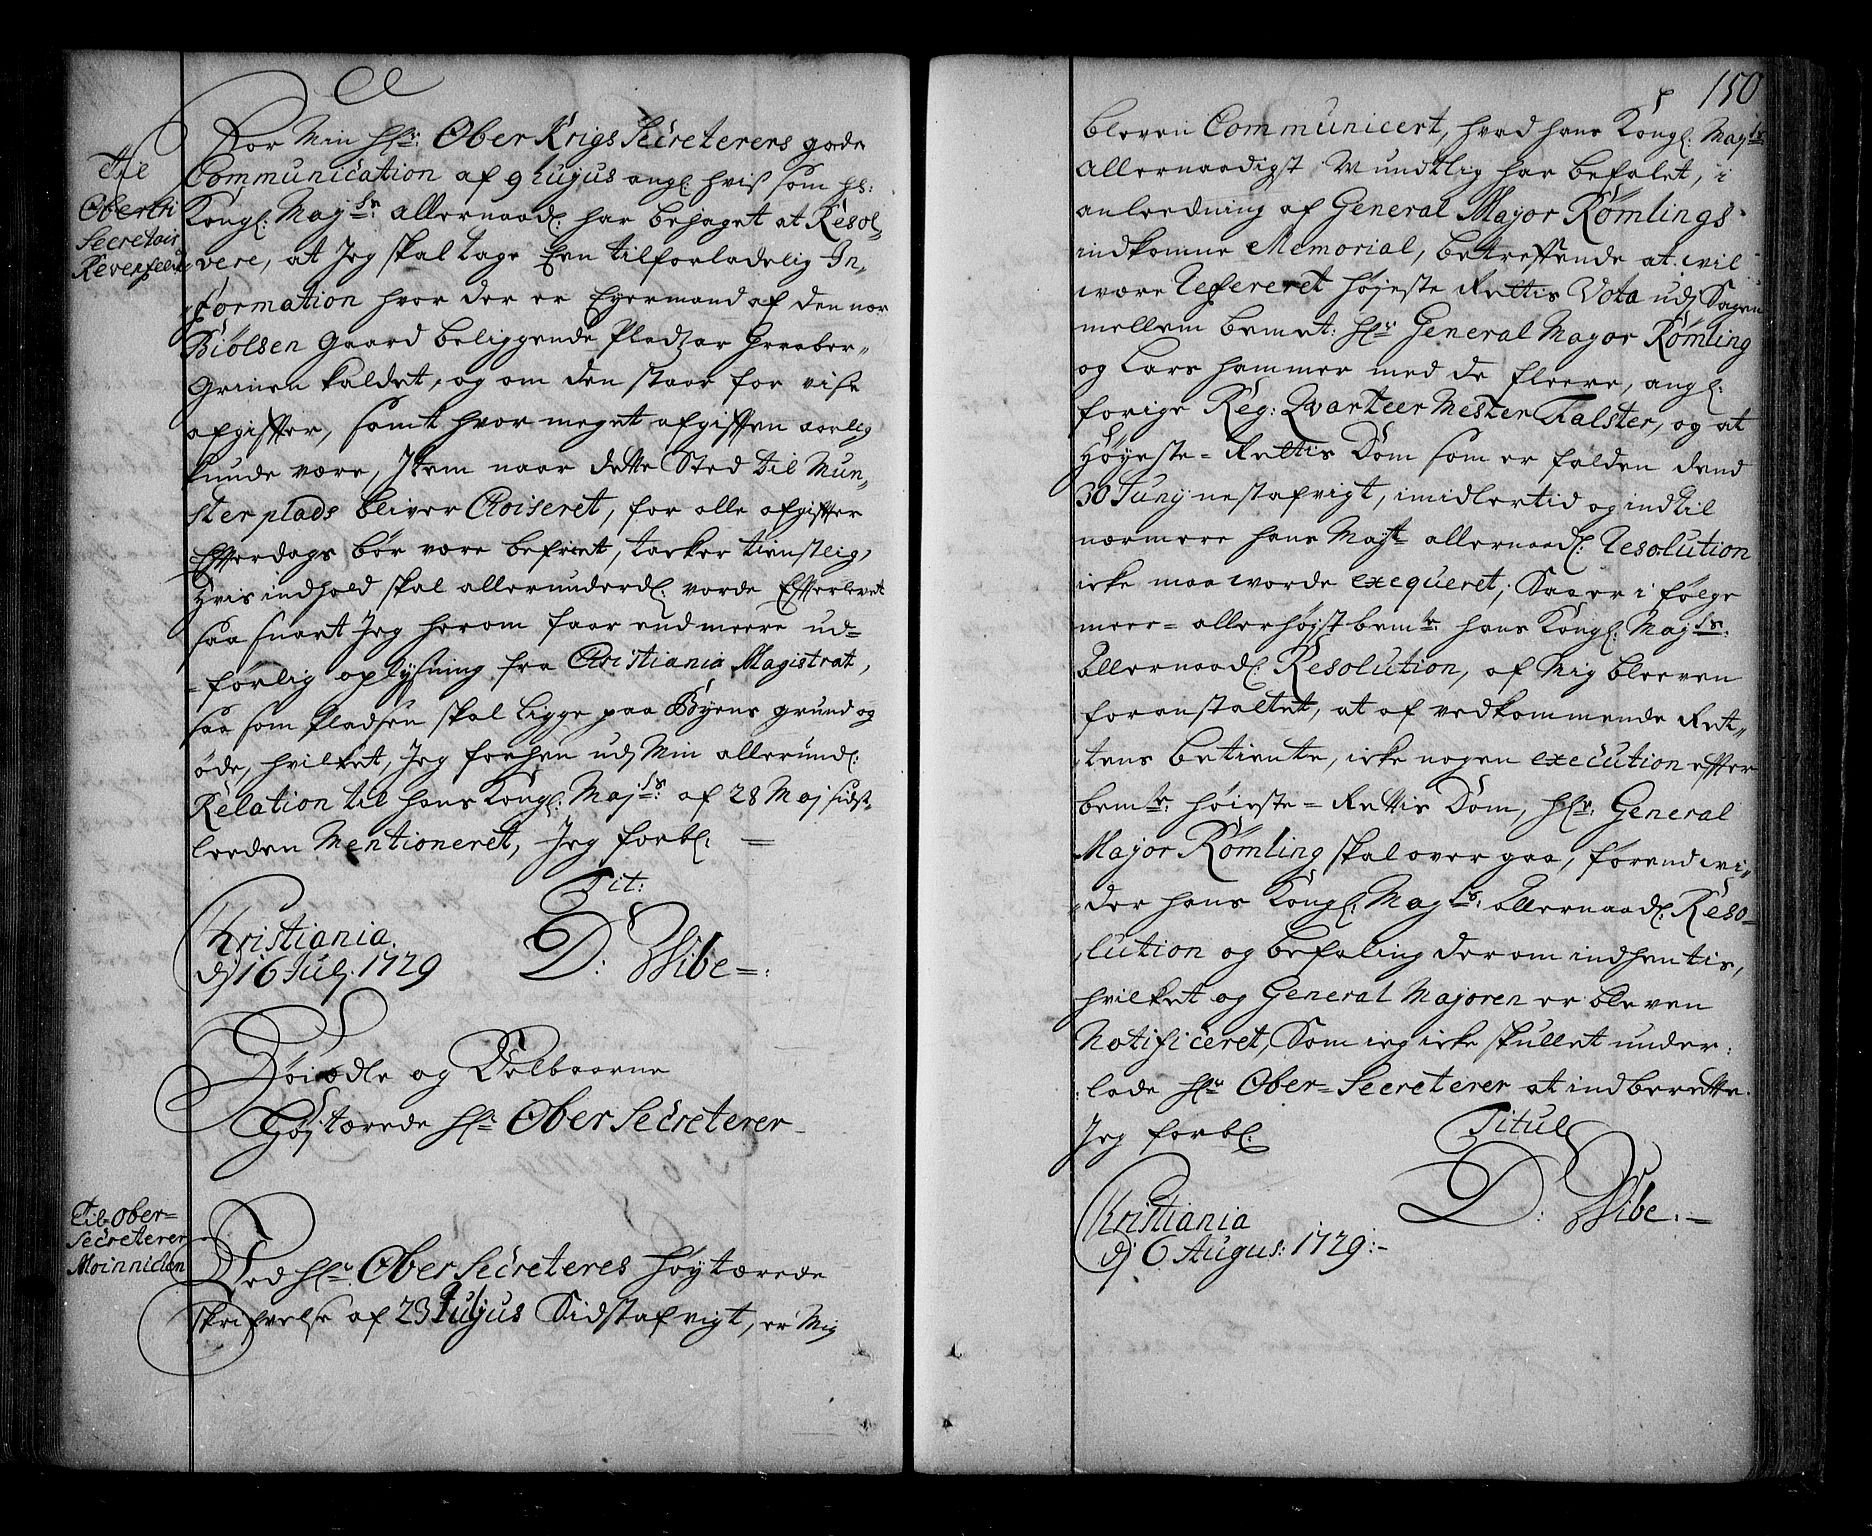 Til
Oberkri
Secretair
Revenfeldt
For Min hl: Ober Krigs Secreterers gode
Communication af 9 hujus ang: hvis som hs:
Kongl: Maj:ts allernaad: har behaget at Resol„
vere, at Jeg skal tage Een tilforladelig In„
„formation hvor der er Eyermand af den nær
Biølsen Gaard beliggende Pladzer Graaber„
Grinen kaldet, og om den staar for visse
afgifter, samt hvor meget afgiften aarlig
kunde være, Item naar dette Sted til Mun„
sterplads bliver Choiseret, for alle afgifter
Efterdags bør være befriet, tacker tienstlig,
Hvis indhold skal allerunderd: vorde Efterlevet
saa snart Jeg herom faar end meere ud=
=førlig oplysning fra Christiania Magistrat,
saa som Pladsen skal ligge paa Byens grund og
øde, hvilket, Jeg forhen udj Min allerund:
Relation til hans Kongl: Maj:ts af 28 Maj sidst„
leeden Mentioneret, Jeg forbl: =
Tit:
Christiania
dj 16 Julj. 1729
D: Wibe=:
Høiædle og Velbaarne
Højstærede Hr. Ober Secreterer
Til Ober=
Secreterer
Moinnichen
Ved Hr. Ober Secreteres høytærede
skrifvelse af 23 Julius Sidstafvigt, er Mig
150
bleven Communicert, hvad hans Kongl: Maj:ts
Allernaadigst Mundtlig har befalet, i
anleedning af General Major Rømlings
indkomne Memorial, betreffende at vil
være Refereret høyeste Rettis Vota udj Sagen
mellem bemet: Hr. General Major Rømling
og Lars Hammer med de fleere, angl:
forige Reg: Qvarteer Mester Falster, og at
Høyeste=Rettis Dom som er falden dend
30 Junij nestafvigt, imidlertid og indtil
nærmere hans Mayt: allernaad: Resolution
icke maa worde exequeret; Saa er i følge
meer=allerhøjstbemte: hans Kongl: Maj:ts:
Allernaad: Resolution, af Mig bleeven
foranstaltet, at af vedkommende Ret„
„tens betiente, icke nogen execution efter
bemte: høieste=Rettis Dom, Hr: General
Major Rømling skal over gaa, førend wi„
„der hans Kongl: Maj:ts: Allernaad: Reso=
„lution og befaling derom indhentis,
hvilket og General Majoren er bleven
Notificeret, Som ieg icke skullet under:
:lade Hr Ober=Secreterer at indberette.
Jeg forbl:
Titul
Christiania
dj 6 Augus: 1729:-
D: Wibe.:-